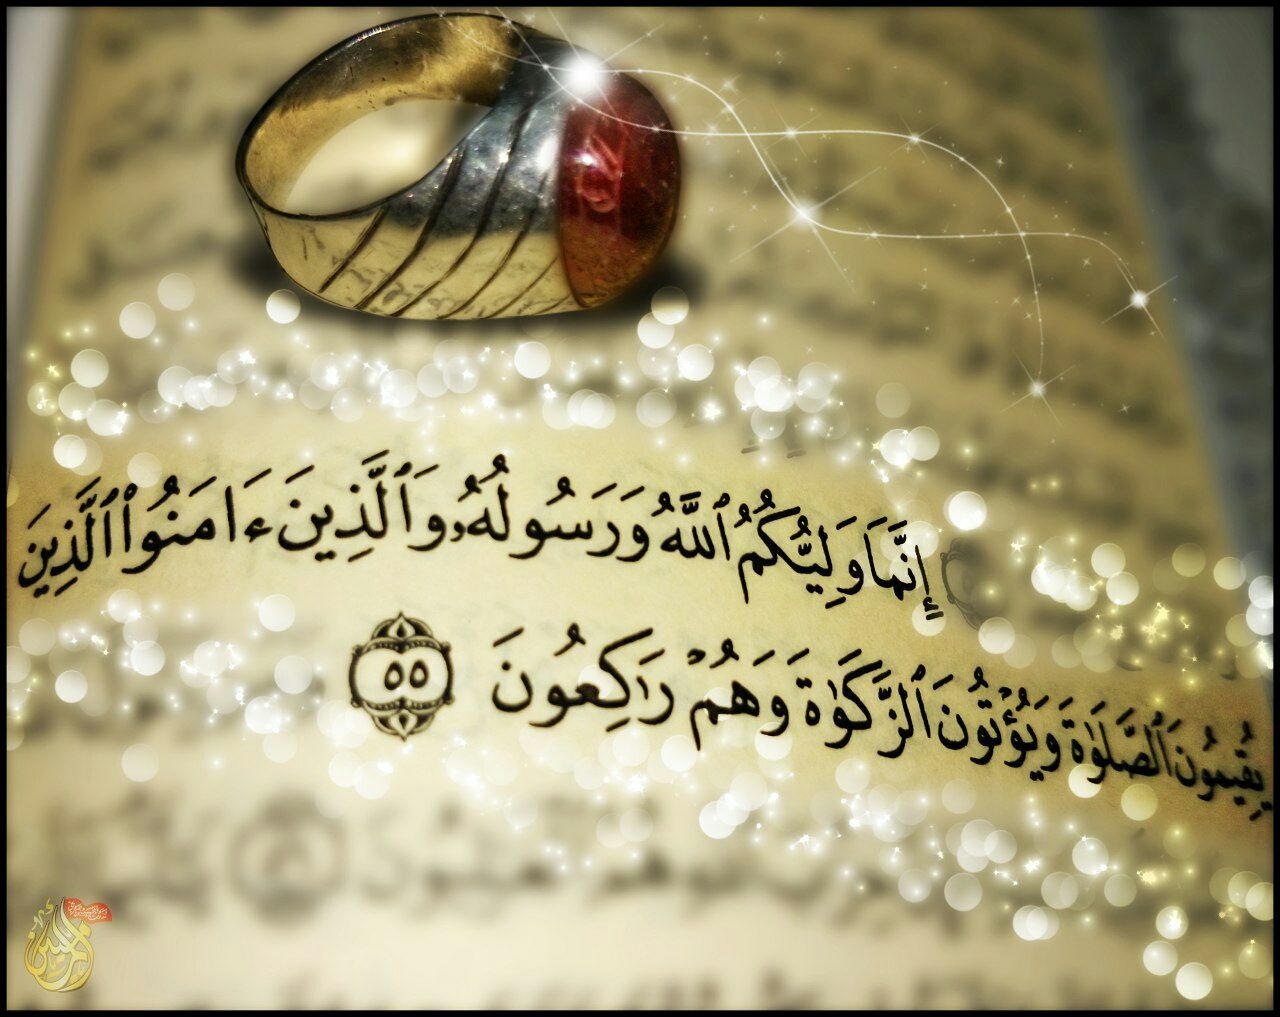 إِنَّمَا وَلِيُّكُمُ ٱللَّهُ وَرَسُولُهُۥ وَٱلَّذِينَ ءَامَنُوا۟ ٱلَّذِينَ
يُقِيمُونَ ٱلصَّلَوٰةَ وَيُؤْتُونَ ٱلزَّكَوٰةَ وَهُمْ رَٰكِعُونَ ٥٥